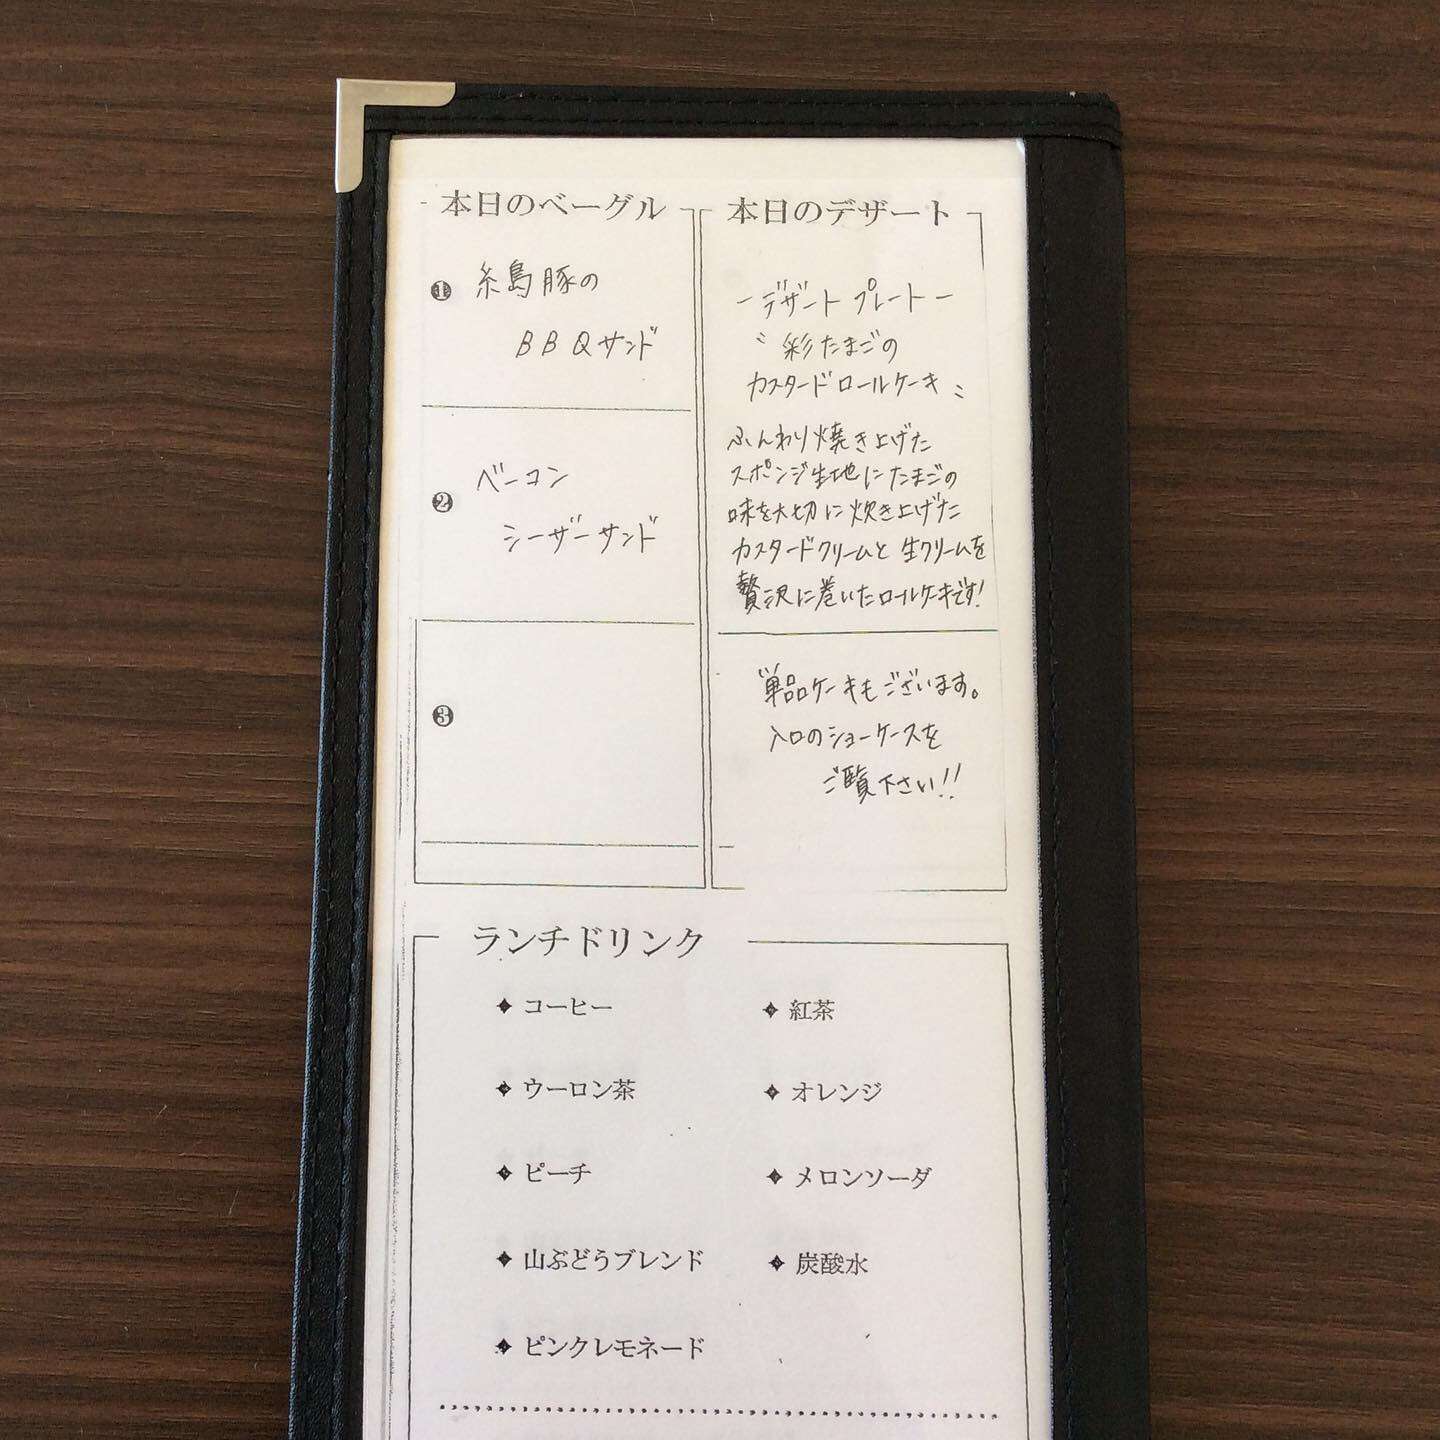 本日のベーグル
❶ 糸島豚の
BBQサンド
❷ ベーコン
シーザーサンド
❸
本日のデザート
ーデザートプレートー
〝彩たまごの
カスタードロールケーキ〟
ふんわり焼き上げた
スポンジ生地にたまごの
味を大切に炊き上げた
カスタードクリームと生クリームを
贅沢に巻いたロールケーキです!
単品ケーキもございます。
入口のショーケースを
ご覧下さい!!
ランチドリンク
✦ コーヒー
✦ 紅茶
✦ ウーロン茶
✦ オレンジ
✦ ピーチ
✦ メロンソーダ
✦ 山ぶどうブレンド
✦ 炭酸水
✦ ピンクレモネード